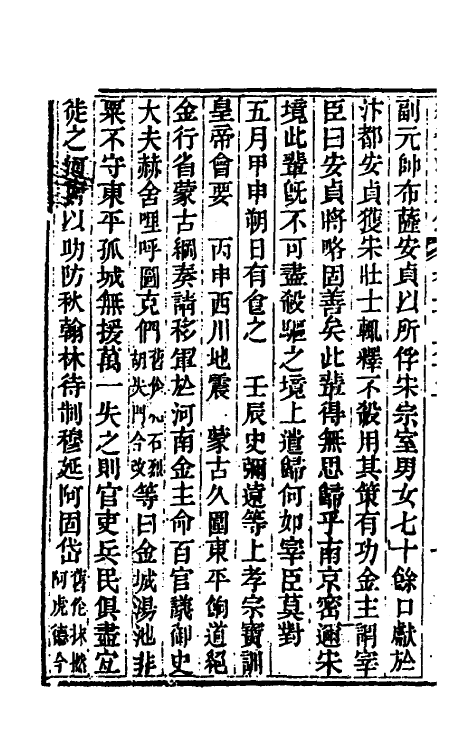 副元帥布薩安貞以所俘宋宗室男女七十餘口獻於
汴都安貞獲宋壯士輒釋不殺用其策有功金主謂宰
臣曰安貞將略固善矣此輩得無思歸乎南京密邇宋
境此輩旣不可盡殺驅之境上遣歸何如宰臣莫對
五月甲申朔日有食之　壬辰史彌遠等上孝宗寶訓
皇帝會要　丙申西川地震　蒙古久圍東平餉道絕
金行省蒙古綱奏請移軍於河南金主命百官議御史
大夫赫舍哩呼圖克們舊作紇石烈胡失門今改等曰金城湯池非
粟不守東平孤城無援萬一失之則官吏兵民俱盡宜
徙之以助防秋翰林待制穆延阿固岱舊作抹撚阿虎德今